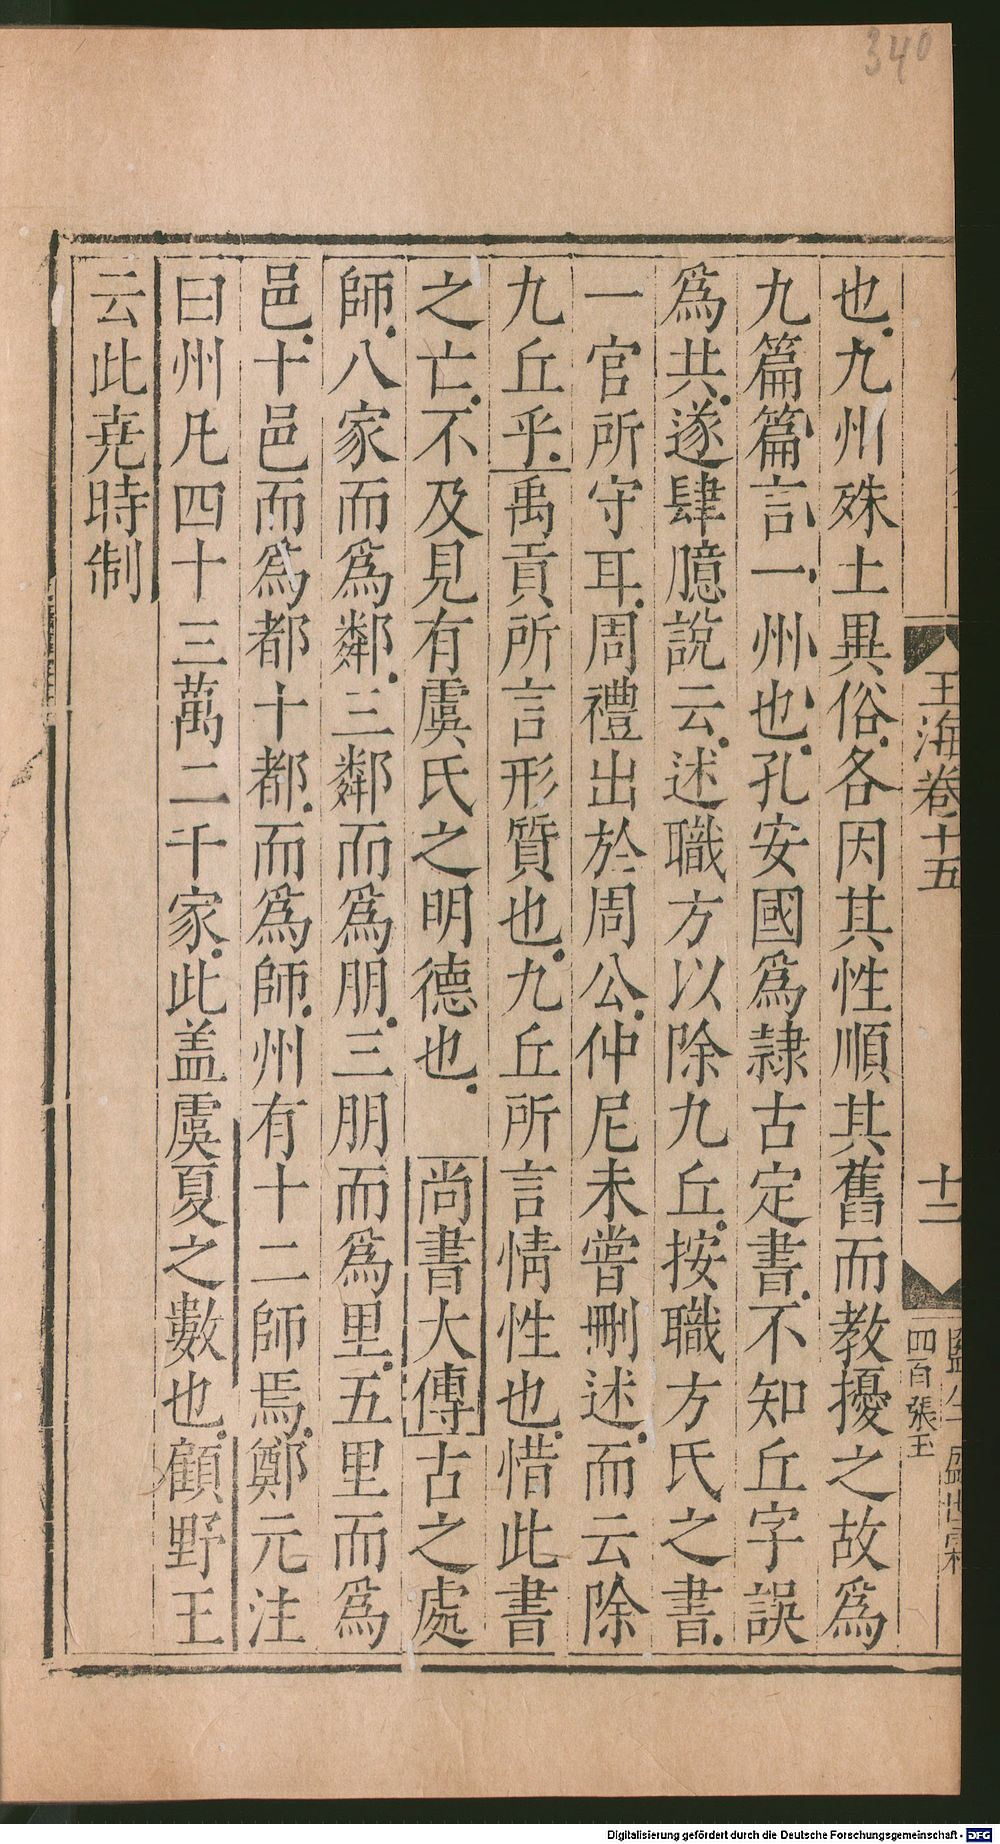 340
玉海卷十五
十二
四百張玉
也九州殊土異俗各因其性順其舊而教擾之故爲
九篇篇言一州也孔安國爲隷古定書不知丘字誤
爲共遂肆臆說云述職方以除九丘按職方氏之書
一官所守耳周禮出於周公仲尼未嘗刪述而云除
九丘乎禹貢所言形質也九丘所言情性也惜此書
之亡不及見有虞氏之明德也 尚書大傳古之處
師八家而爲鄰三鄰而爲朋三朋而爲里五里而爲
邑十邑而爲都十都而爲師州有十二師焉鄭元注
曰州凡四十三萬二千家此盖虞夏之數也顧野王
云此堯時制
Digitalisierung gefördert durch die Deutsche Forschungsgemeinschaft - DFG